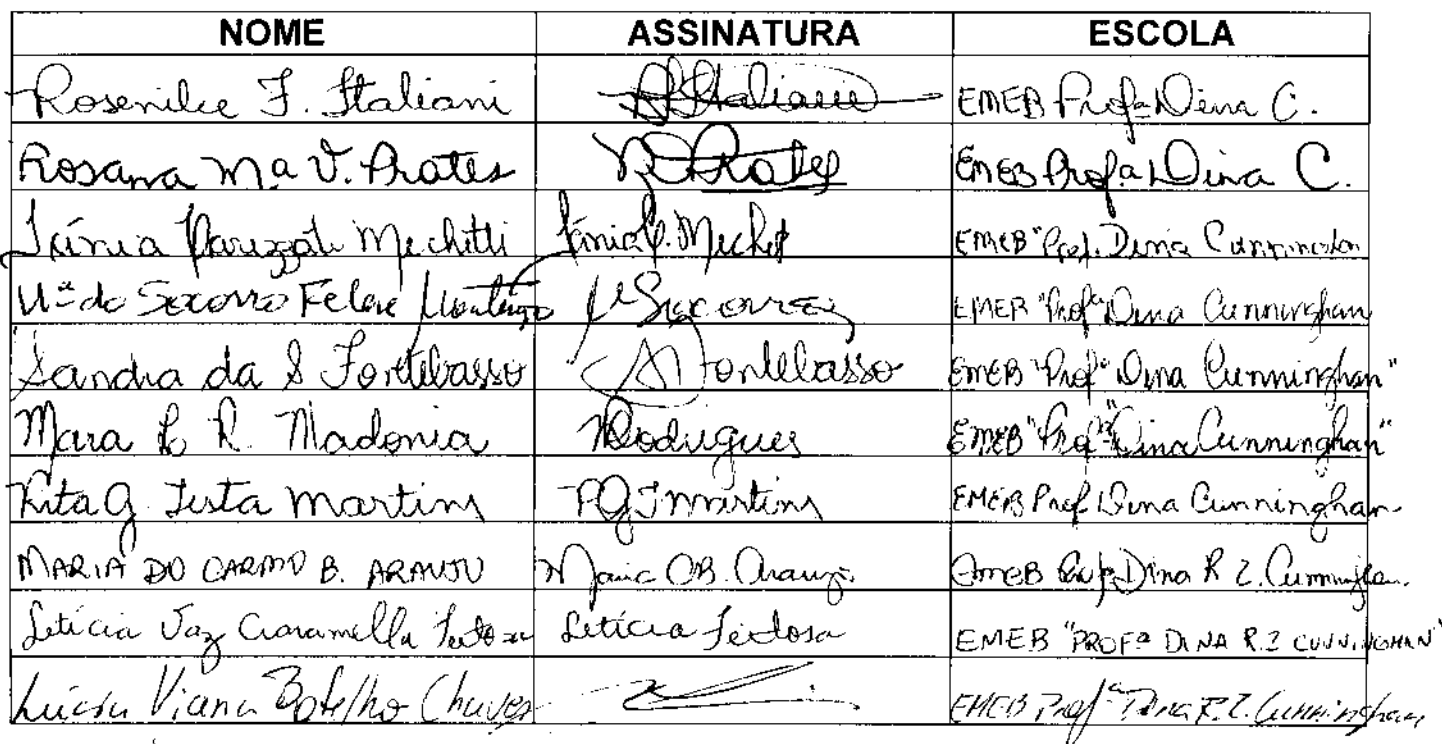 NOME ASSINATURA ESCOLA
Rosenilce F. Italiani Italiani EMEB Profª Dina C.
Rosana Mª V. Prates R Prates EMEB Profª Dina C.
Tânia Paruzzati Mechitti Tânia P. Mechit EMEB "Prof. Dina Cunningham
Mª do Socorro Felex Monteiro Mª Socorro EMEB "Profª Dina Cunningham
Sandra da S Fontebasso Fontebasso EMEB "Profª Dina Cunningham"
Mara L R. Madonia Rodrigues EMEB "Profª Dina Cunningham"
Rita G. Testa Martins RGT Martins EMEB Prof. Dina Cunningham
MARIA DO CARMO B. ARAUJO Maria CB. Araujo EMEB Profª Dina R Z. Cunningham
Letícia Vaz Ciaramella Feitosa Letícia Feitosa EMEB "PROFª DINA R.Z CUNNINGHAN"
Lúcia Viana Botelho Chaves EMEB Profª Dina R.Z. Cunningham